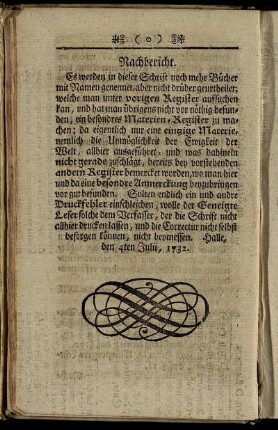 ( o )
Nachbericht.
Es werden in dieser Schrift noch mehr Bücher
mit Namen genennet, aber nicht drüber geurtheilet;
welche man unter vorigen Register auffsuchen
kan, und hat man übrigens nicht vor nöthig befun-
den, ein besondres Materien-Register zu ma-
chen; da eigentlich nur eine eintzige Materie,
nemlich die Unmöglichkeit der Ewigkeit der
Welt, allhier ausgeführet, und was dahinein
nicht gerade zuschlägt, bereits bey vorstehenden
andern Register bemercket worden, wo man hier
und da eine besondre Anmerckung beyzubringen
vor gut befunden. Solten endlich ein und andre
Druckfehler einschleichen, wolle der Geneigte
Leser solche dem Verfasser, der die Schrift nicht
allhier drucken lassen, und die Correctur nicht selbst
besorgen können, nicht beymessen. Halle,
den 4ten Julii, 1732.